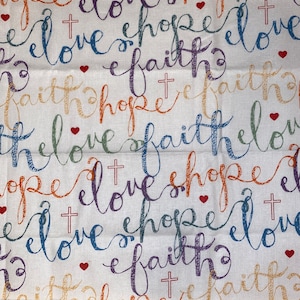 love hope
faith
faith hope faith
love faith love
hope love hope
love hope love
faith
faith hope faith